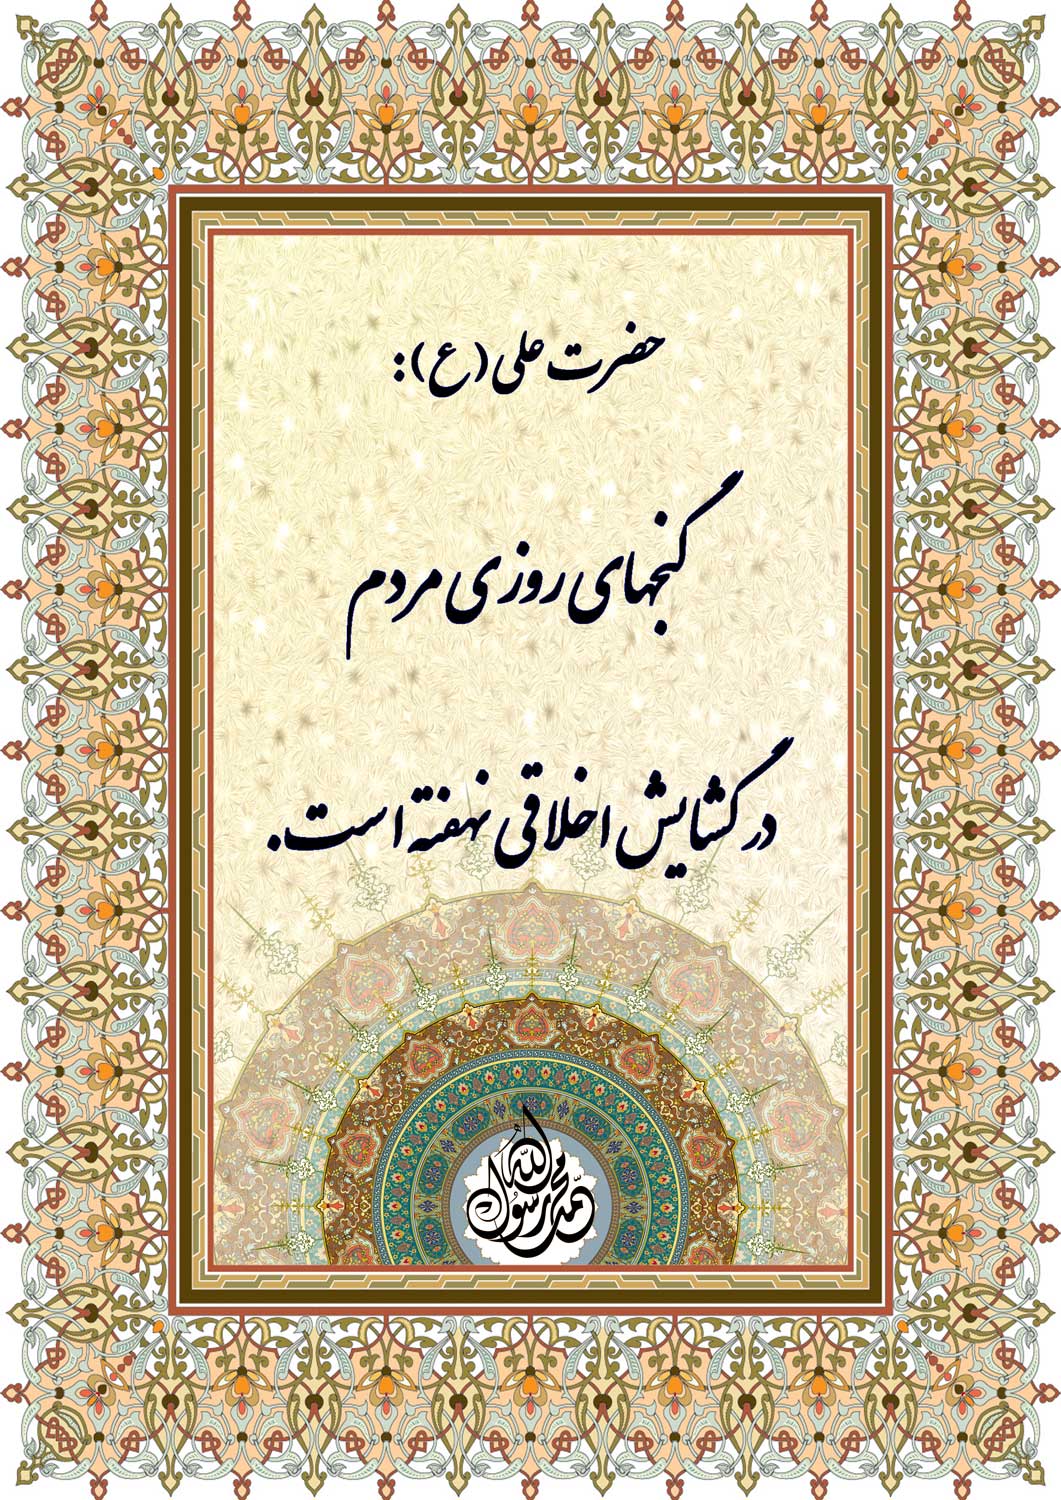 حضرت علی (ع):
گنجهای روزی مردم
در گشایش اخلاقی نهفته است.
محمد رسول الله